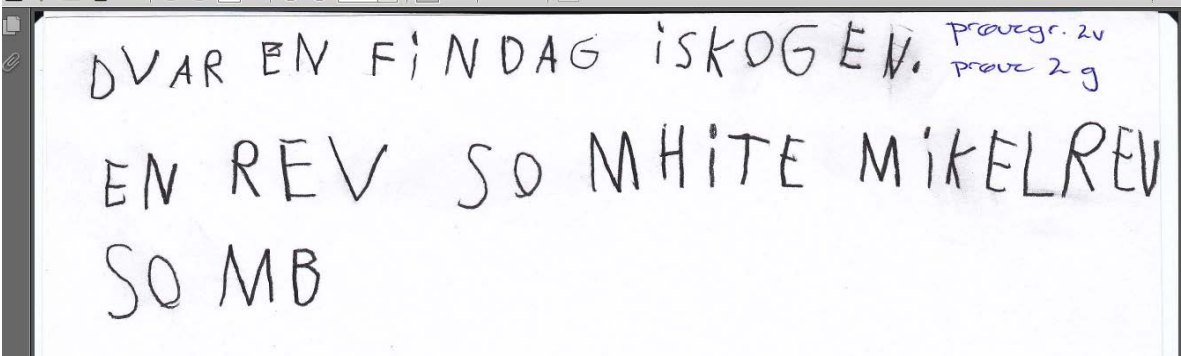 DVAR EN FiNDAG iSKOGEN.
prøvegr. 2v
prøve 2 g
EN REV SO MHiTE MiKELREV
SO MB